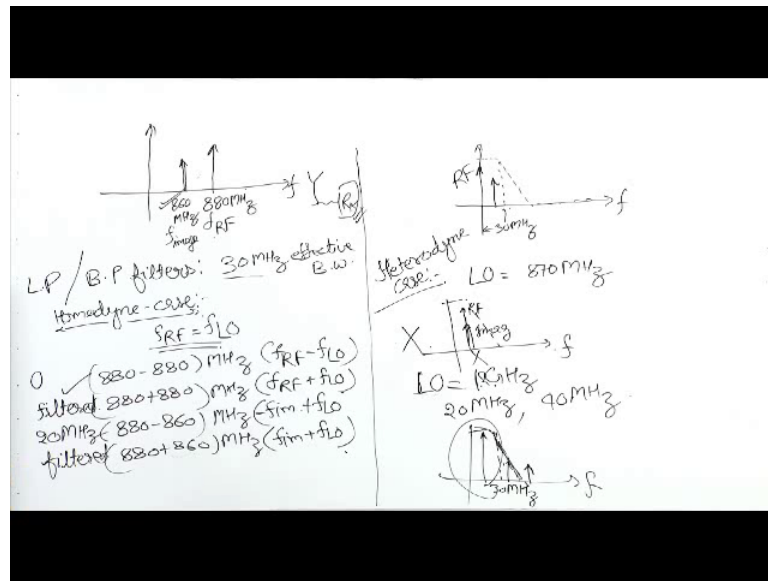 860 MHz
880 MHz
f
f image
fRF
Rx
LP / B.P filters: 30 MHz effective B.W.
Homodyne-case:-
fRF = fLO
0 ✓ (880-880) MHz (fRF-fLO)
filtered (880+880) MHz (fRF+fLO)
20MHz (880-860) MHz (-fim+fLO
filtered (880+860) MHz (fim+fLO)
RF
30MHz
f
Heterodyne case:-
LO = 870 MHz
RF
f
X
X
LO =
20MHz, 40MHz
30MHz
f